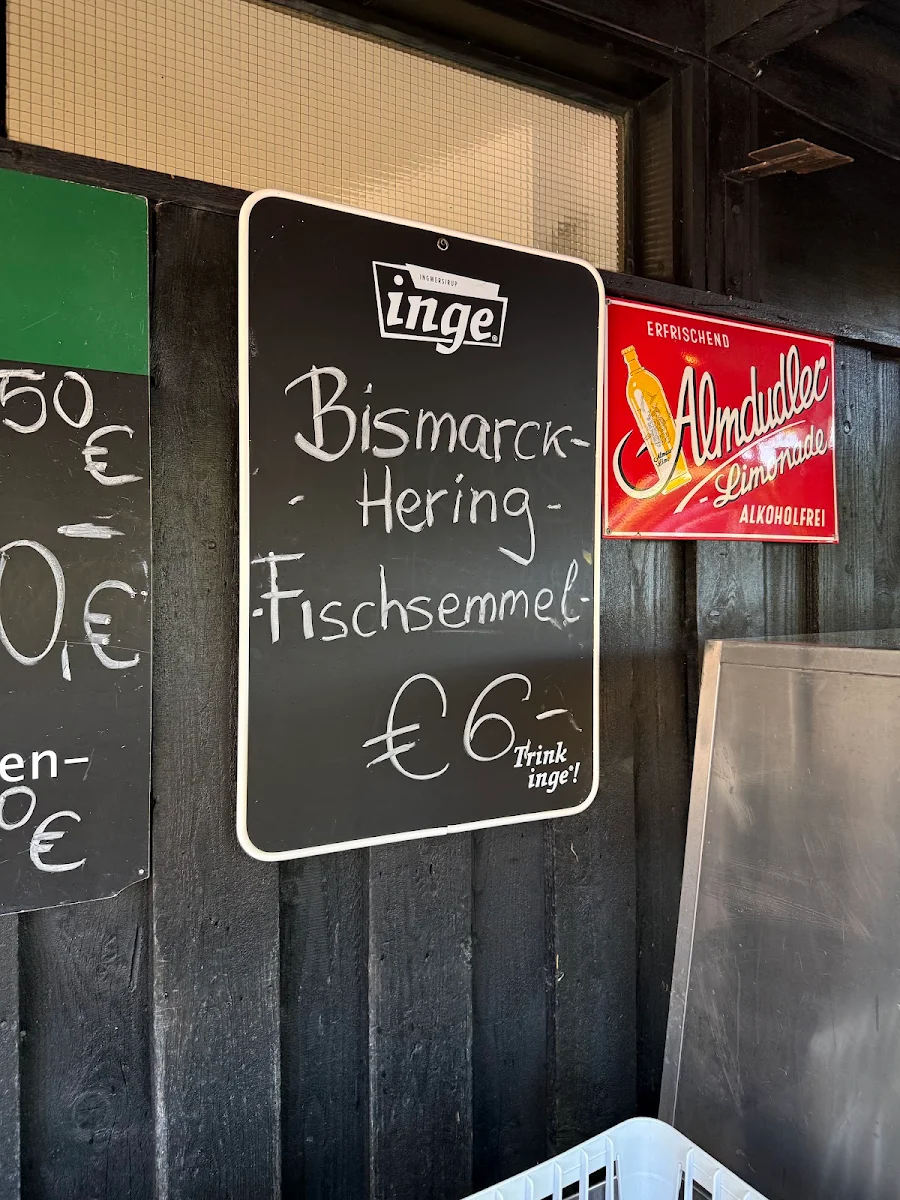 50
€
0,€
en-
0
€
INGWERSIRUP
inge®
Bismarck-
- Hering -
- Fischsemmel -
€ 6 -
Trink
inge®!
ERFRISCHEND
Almdudler
- Limonade -
ALKOHOLFREI